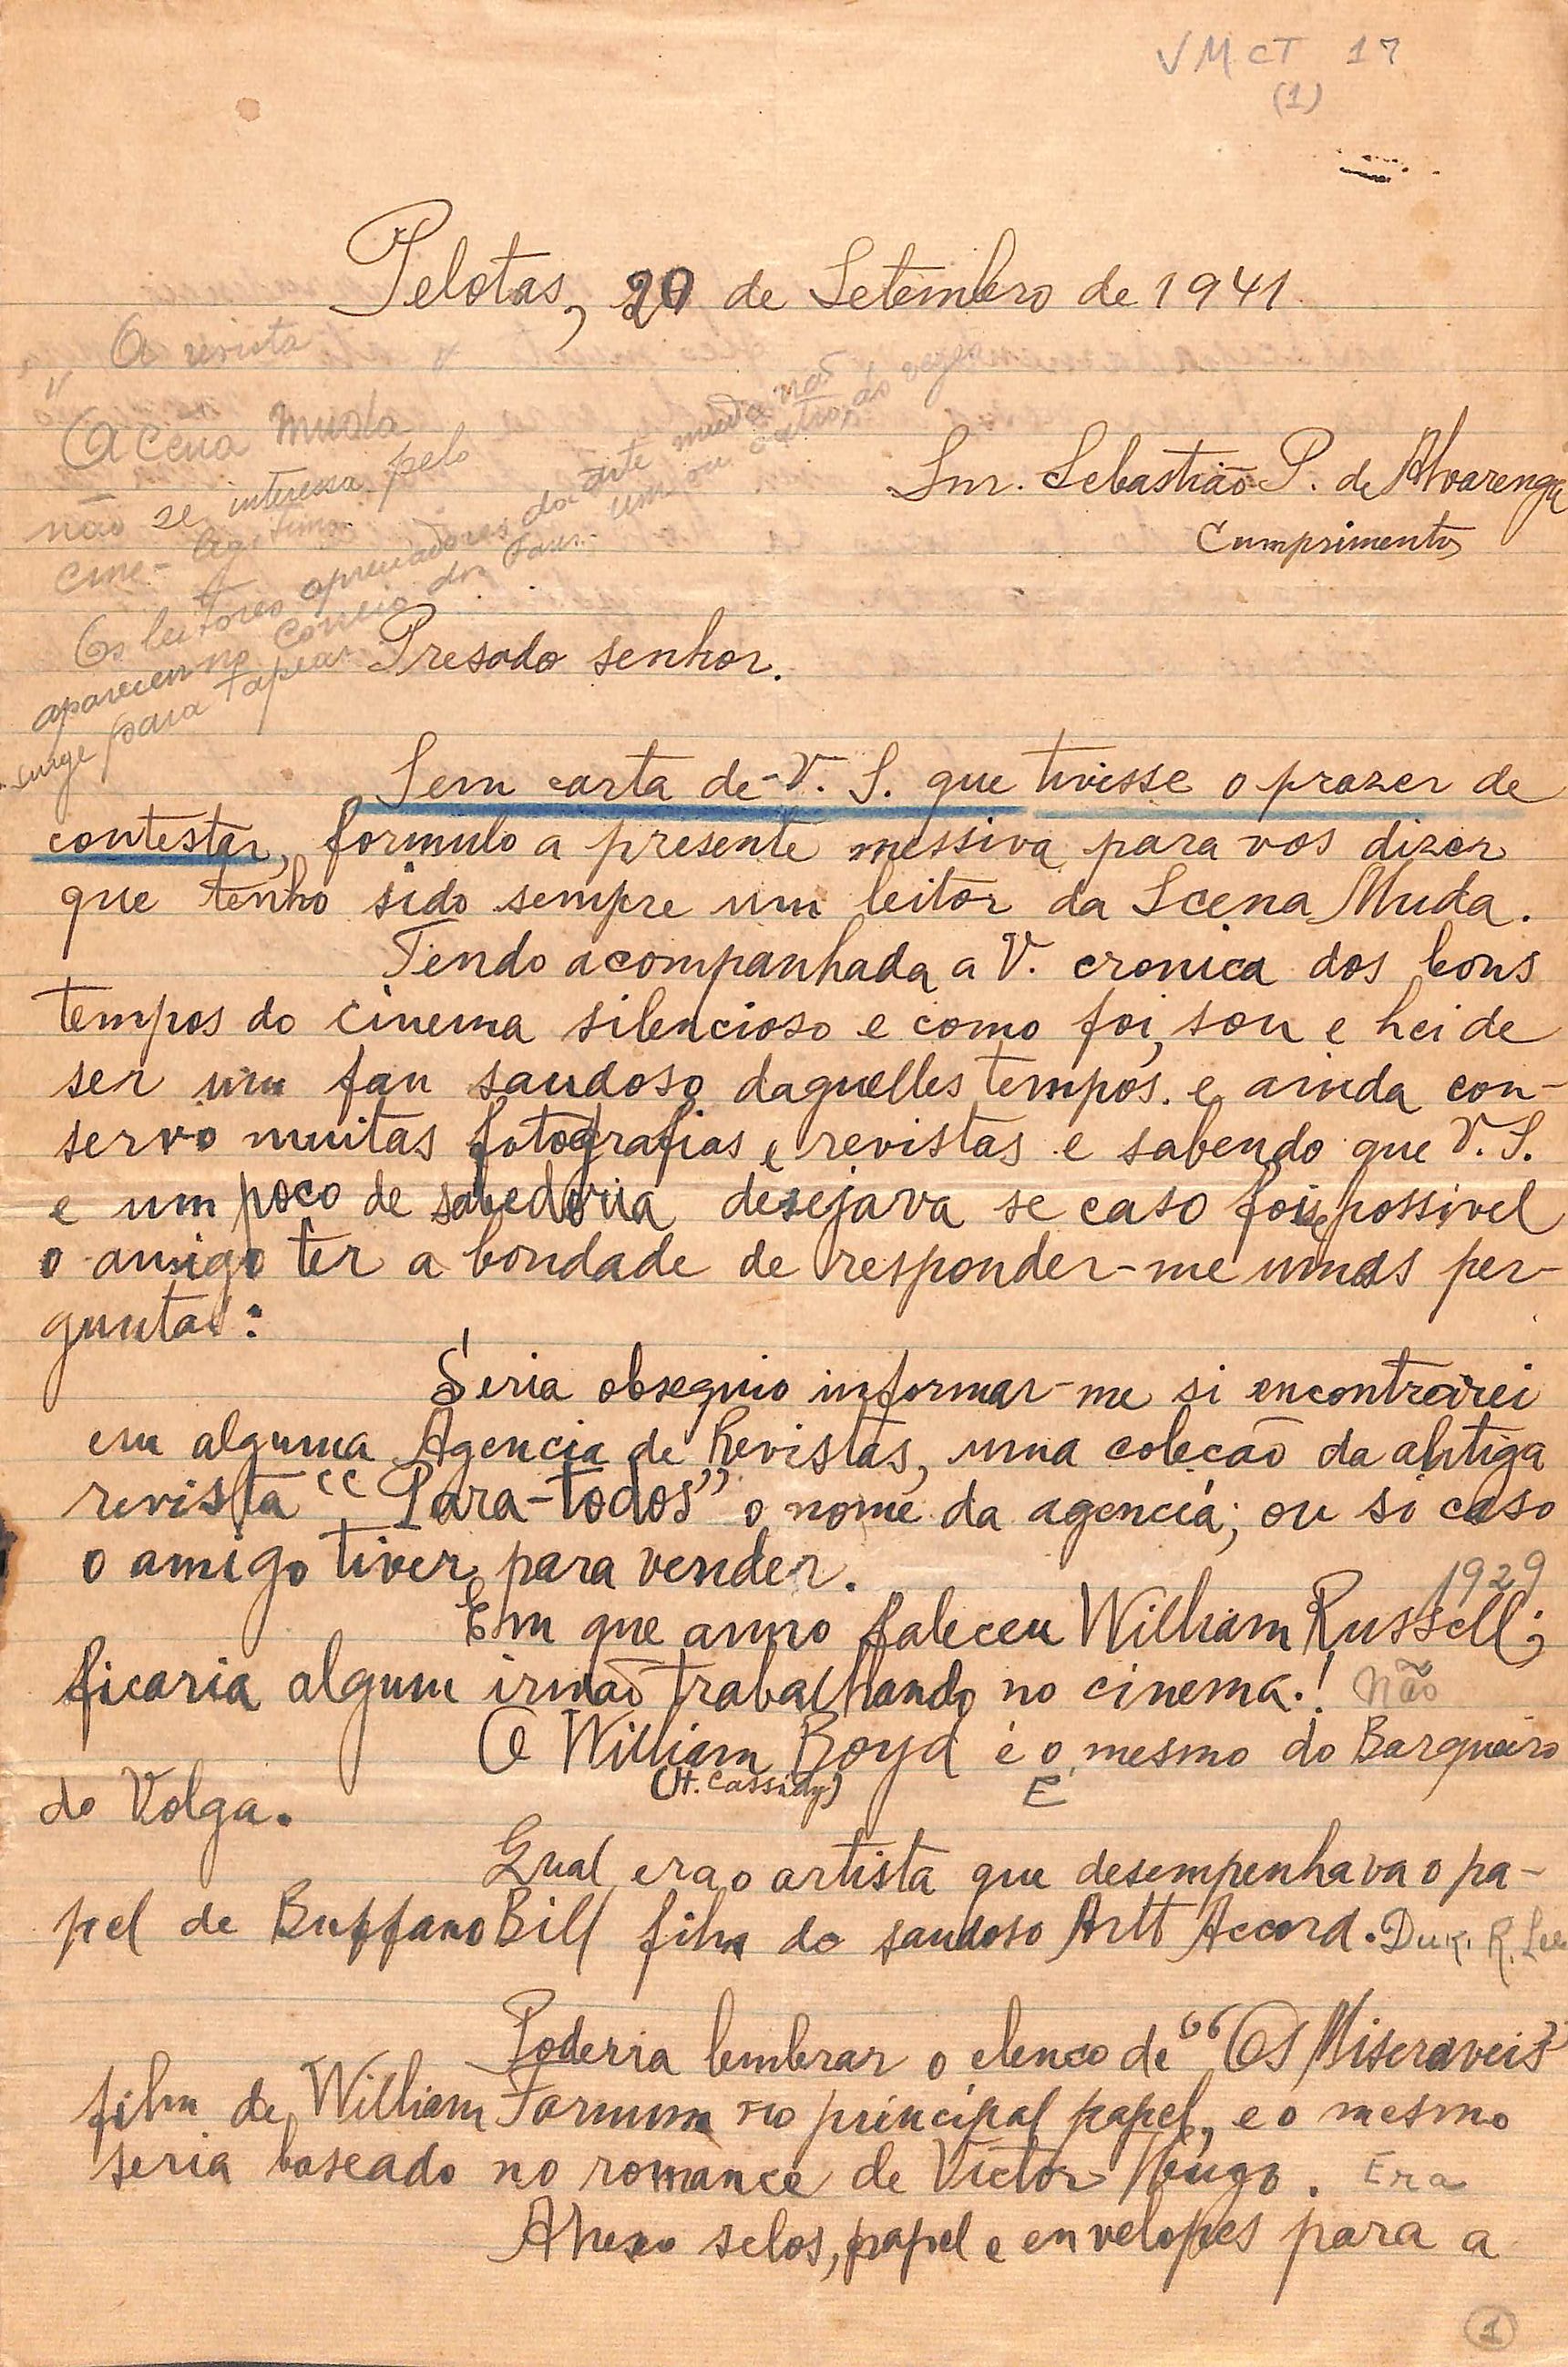 VMCT 17
(1)
Pelotas, 20 de Setembro de 1941
A revista
A cena muda
não se interessa pelo
cine-
Os leitores apreciadores da arte muda não
aparecem no correio dos fans. um ou outro, às vezes
surge para tapear
Snr. Sebastião P. de Alvarenga
Cumprimentos
Presado senhor.
Sem carta de V. S. que tivesse o prazer de
contestar, formulo a presente messiva para vos dizer
que tenho sido sempre um leitor da Scena Muda.
Tendo acompanhada a V. cronica dos bons
tempos do cinema silencioso e como foi, sou e hei de
ser um fan saudoso daquelles tempos. e ainda con-
servo muitas fotografias e revistas e sabendo que V. S.
e um poco de sabedoria desejava se caso foise possivel
o amigo têr a bondade de responder-me umas per-
guntas:
Seria obsequio informar-me si encontrarei
em alguma Agencia de Revistas, uma coleção da antiga
revista "Para-todos" o nome da agencia; ou si caso
o amigo tiver para vender.
1929
Em que anno faleceu William Russell;
ficaria algum irmão trabalhando no cinema.! Não
O William Boyd é o mesmo do Barqueiro
(H. Cassidy) E
do Volga.
Qual era o artista que desempenhava o pa-
pel de Buffano Bill film do saudoso Artt Accord. Duk. R. Lee
Poderia lembrar o elenco de "Os Miseraveis"
film de William Farnum no principal papel, e o mesmo
seria baseado no romance de Victor Hugo. Era
Anexo selos, papel e envelopes para a
1